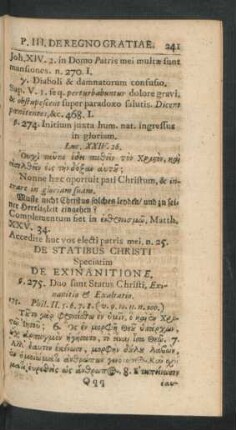 P. III. DE REGNO GRATIAE. 241
Joh. XIV. 2. in Domo Patris mei multæ sunt
mansiones. n. 270. l.
7. Diaboli & damnatorum confusio.
Sap. V. 1. seq. perturbabuntur dolore gravi,
& obstupescent super paradoxo salutis. Dicent
pœnitentes, &c. 468. l.
§. 274. Initium juxta hum. nat. ingressus
in gloriam.
Luc. XXIV. 26.
Οὐχὶ ταῦτα ἔδει παθεῖν τὸν Χριστὸν, καὶ
εἰσελθεῖν εἰς τὴν δόξαν αὑτοῦ;
Nonne hæc oportuit pati Christum, & in-
trare in gloriam suam.
Muste nicht Christus solches leyden/ und zu sei-
ner Herrligkeit eingehen?
Complementum het in Matth.
XXV. 34.
Accedite huc vos electi patris mei. n. 25.
DE STATIBUS CHRISTI
Speciatim
DE EXINANITIONE,
§. 275. Duo sunt Status Christi, Exi-
nanitio & Exaltatio.
Phil. II. 5. 6. 7. 8.
Τοῦτο γὰρ φρονείσθω ἐν ὑμῖν, ὃ καὶ ἐν Χρι-
6. ὃς ἐν μορφῇ Θεοῦ ὑπάρχων,
οὐχ ἁρπαγμὸν ἡγήσατο, τὸ εἶναι ἴσα Θεῷ. 7.
Ἀλλ' ἑαυτὸν ἐκένωσε, μορφὴν δούλου λαβὼν,
ἐν ὁμοιώματι ἀνθρώπων
εὑρεθεὶς ὡς ἄνθρωπος 8. ἐταπείνωσεν
Qqq ἑαυ-